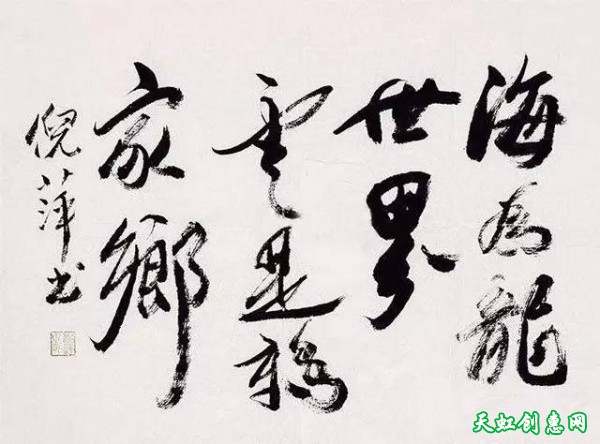 海為龍
世界
雲是鶴
家鄉
倪萍书
天虹创意网